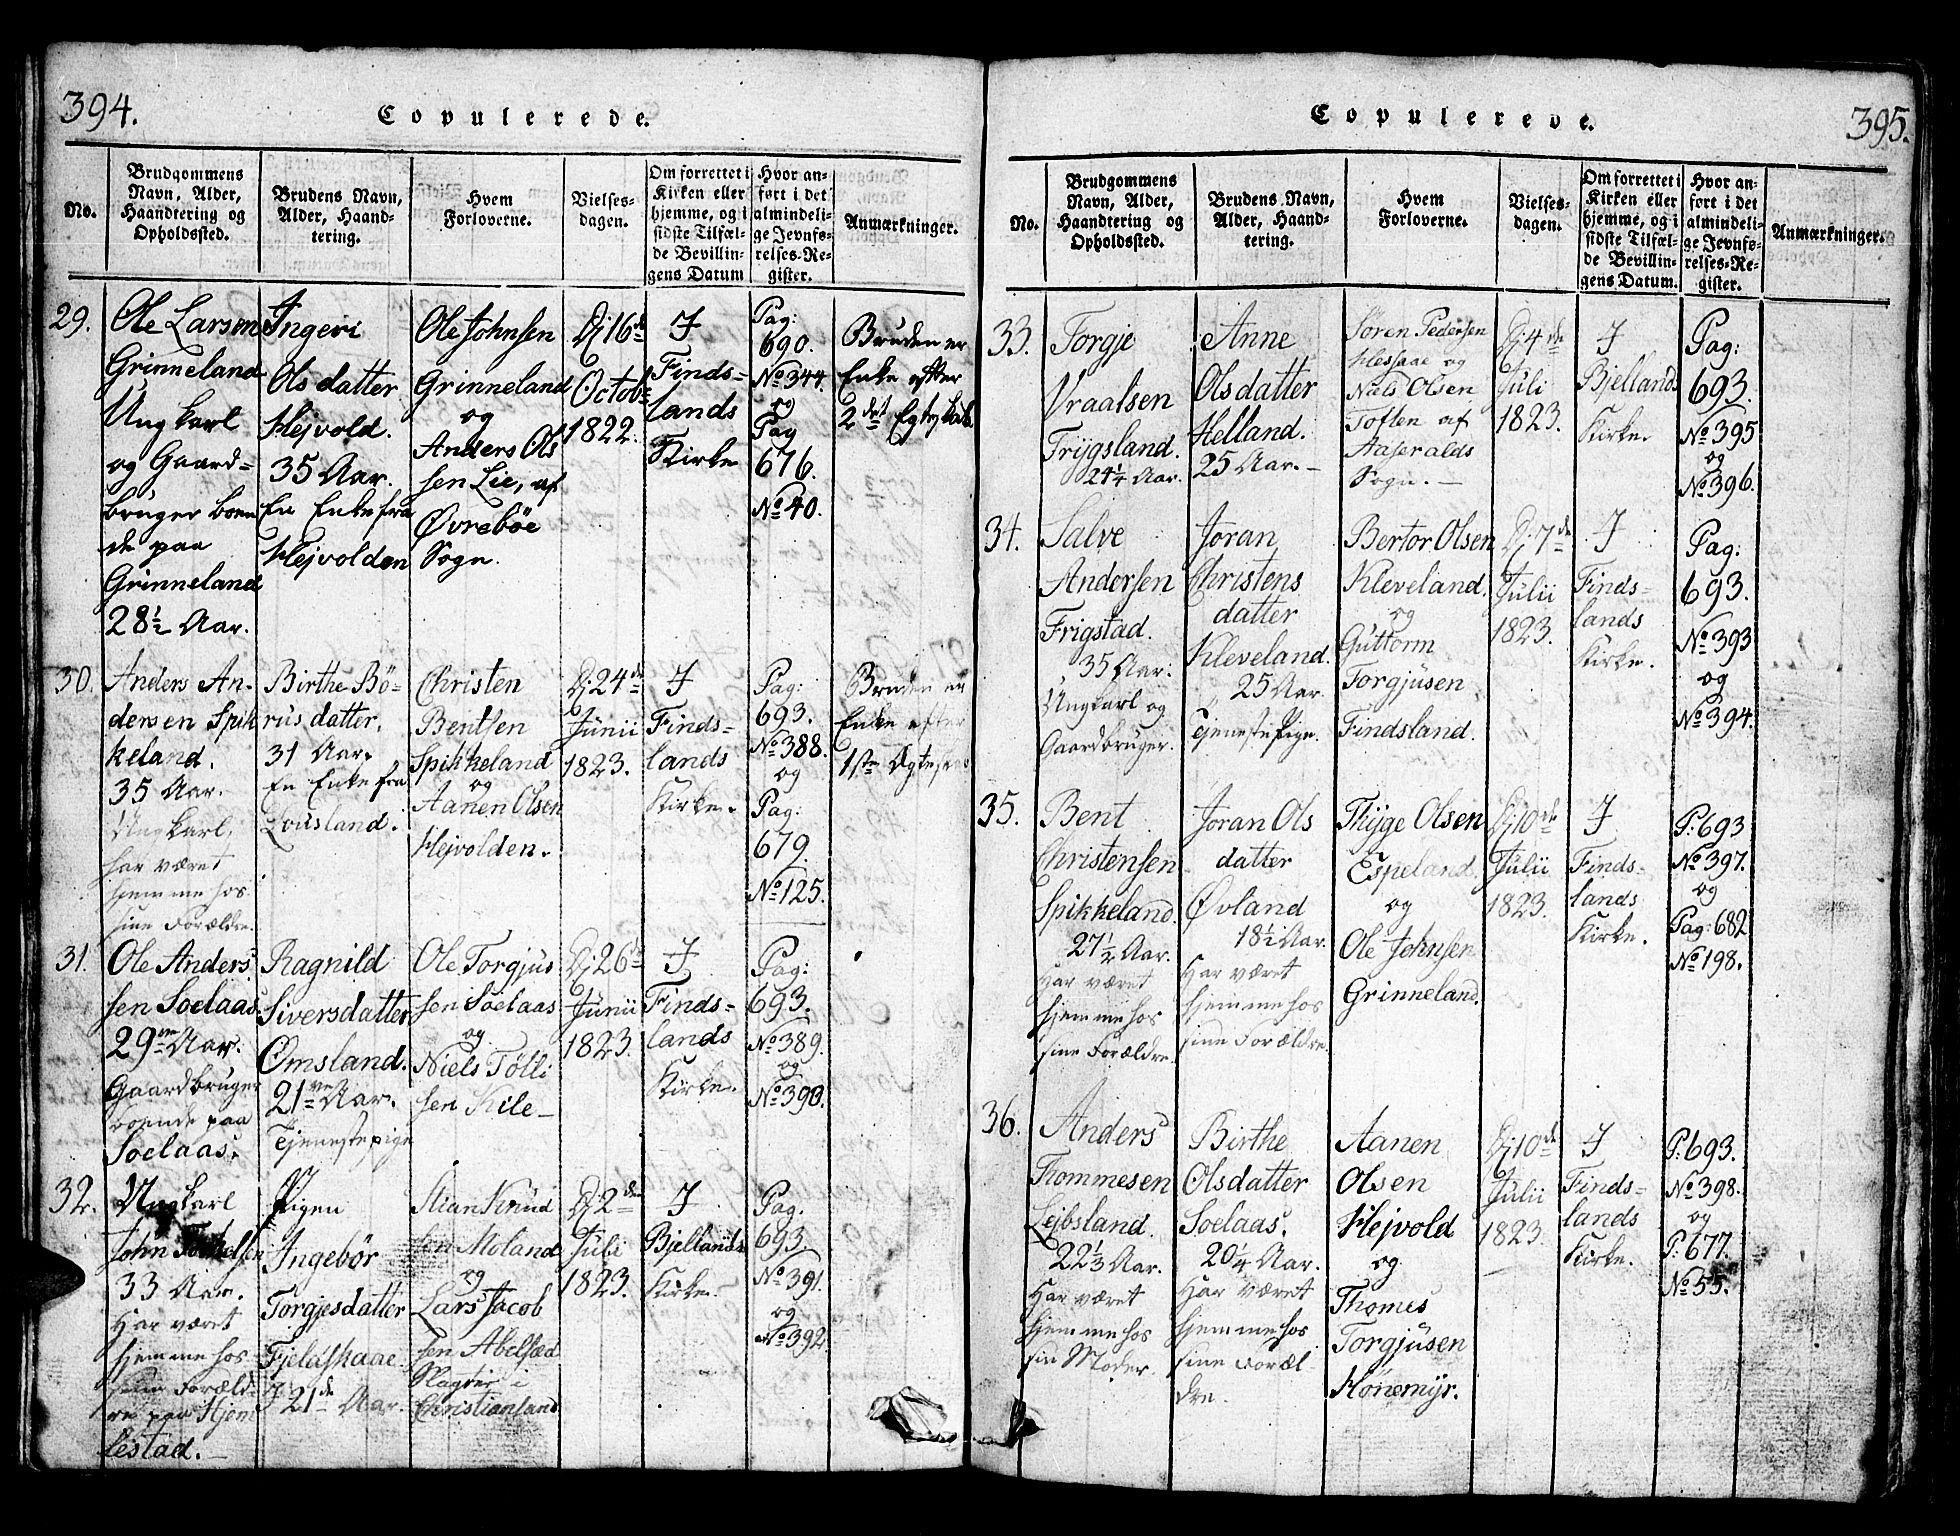 394.
Copulerede.
No.
Brudgommens
Navn, Alder,
Haandtering og
Opholdssted.
Brudens Navn,
Alder, Haand-
tering.
Hvem
Forloverne.
Vielses-
dagen.
Om forrettet i
Kirken eller
hjemme, og i
sidste Tilfæl-
de Bevillin-
gens Datum
Hvor an-
ført i det
almindeli-
ge Jevnfø-
relses-Re-
gister.
Anmærkninger.
29.
Ole Larsen
Grinneland
Ungkarl
og Gaard-
bruger boen
de paa
Grinneland
28½ Aar.
Ingeri
Olsdatter
Hejvold.
35 Aar.
En Enke fra
Hejvolden
Ole Johnsen
Grinneland
og
Anders Ols
sen Lie, af
Øvrebøe
Sogn.
Dj 16de
Octob:
1822.
I
Finds-
lands
Kirke
Pag:
690.
No 344.
og
Pag
676.
No 40.
Bruden er
Enke efter
2det Egteskab
30.
Anders An-
dersen Spik
keland.
35 Aar.
Ungkarl,
har været
hjemme hos
sine Forældre.
Birthe Bö-
rusdatter.
31 Aar.
En Enke fra
Lousland.
Christen
Bentsen
Spikkeland
og
Aanen Olsen
Hejvolden.
Dj 24de
Junii
1823.
I
Finds-
lands
Kirke.
Pag:
693.
No 388.
og
Pag:
679.
No 125.
Bruden er
Enke efter
1ste
31.
Ole Anders
sen Soelaas
29ve Aar.
Gaardbruger
boende paa
Soelaas.
Ragnild
Siversdatter
Omsland.
21ve Aar.
Tjenestepige
Ole Torgjus
sen Soelaas
og
Niels Tølli
sen Kile-
Dj 26de
Junii
1823.
I
Finds-
lands
Kirke.
Pag:
693.
No 389.
og
No 390.
32.
Ungkarl
John
33 Aar.
Har været
hjemme hos
sine Foræld-
re paa Hjem
lestad.
Pigen
Ingebör
Torgjesdatter
Fjeldskaae
21de Aar.
Stian Knud
sen Moland
og
Lars Jacob
sen Abelsæd
i
Christianland
Dj 2den
Juli
1823.
I
Bjellands
Kirke.
Pag.
693
No 391.
og
No 392.
395.
Copulerede.
No.
Brudgommens
Navn, Alder,
Haandtering og
Opholdssted.
Brudens Navn,
Alder, Haand-
tering.
Hvem
Forloverne.
Vielses-
dagen.
Om forrettet i
Kirken eller
hjemme, og i
sidste Tilfæl-
de Bevillin-
gens Datum.
Hvor an-
ført i det
almindeli-
ge Jevnfø-
relses-Re-
gister.
Anmærkninger.
33.
Torgje
Vraalsen
Trygsland.
24¼ Aar.
Anne
Olsdatter
Helland.
25 Aar.-
Søren Pedersen
og
Niels Olsen
Toften af
Aaseralds
Sogn.-
Dj 4de
Juli
1823.
I
Bjellands
Kirke.
Pag:
693.
No 395
og
No 396.
34.
Salve
Andersen
Frigstad.
35 Aar.
Ungkarl og
Gaardbruger.
Joran
Christens
datter
Kleveland.
25 Aar.
Tjeneste Pige.
Bertor Olsen
Kleveland.
og
Guttorm
Torgjusen
Findsland.
Dj 7de
Julii
1823.
I
Finds-
lands
Kirke.
Pag:
693.
No 393
og
No 394.
35.
Bent
Christensen
Spikkeland.
27½ Aar.
Har været
hjemme hos
sine Forældre.
Joran Ols
datter
Øvland
18½ Aar.
Har været
hjemme hos
sine Forældre.
Thyge Olsen
Espeland
og
Ole Johnsen
Grinneland.
Dj 10de
Julii
1823.
I
Finds-
lands
Kirke.
P: 693
No 397.
og
Pag: 682
No 198.
36.
Anders
Thommesen
Lejbsland.
22⅓ Aar.
Har været
hjemme hos
sin Moder.
Birthe
Olsdatter
Soelaas.
20¼ Aar.
Har været
hjemme hos
sine Foræl
dre.
Aanen
Olsen
Hejvold
og
Thomes
Torgjusen
Hönemyr.
Dj 10de
Julii
1823.
I
Finds-
lands
Kirke.
P: 693.
No 398.
og
P: 677.
No 55.